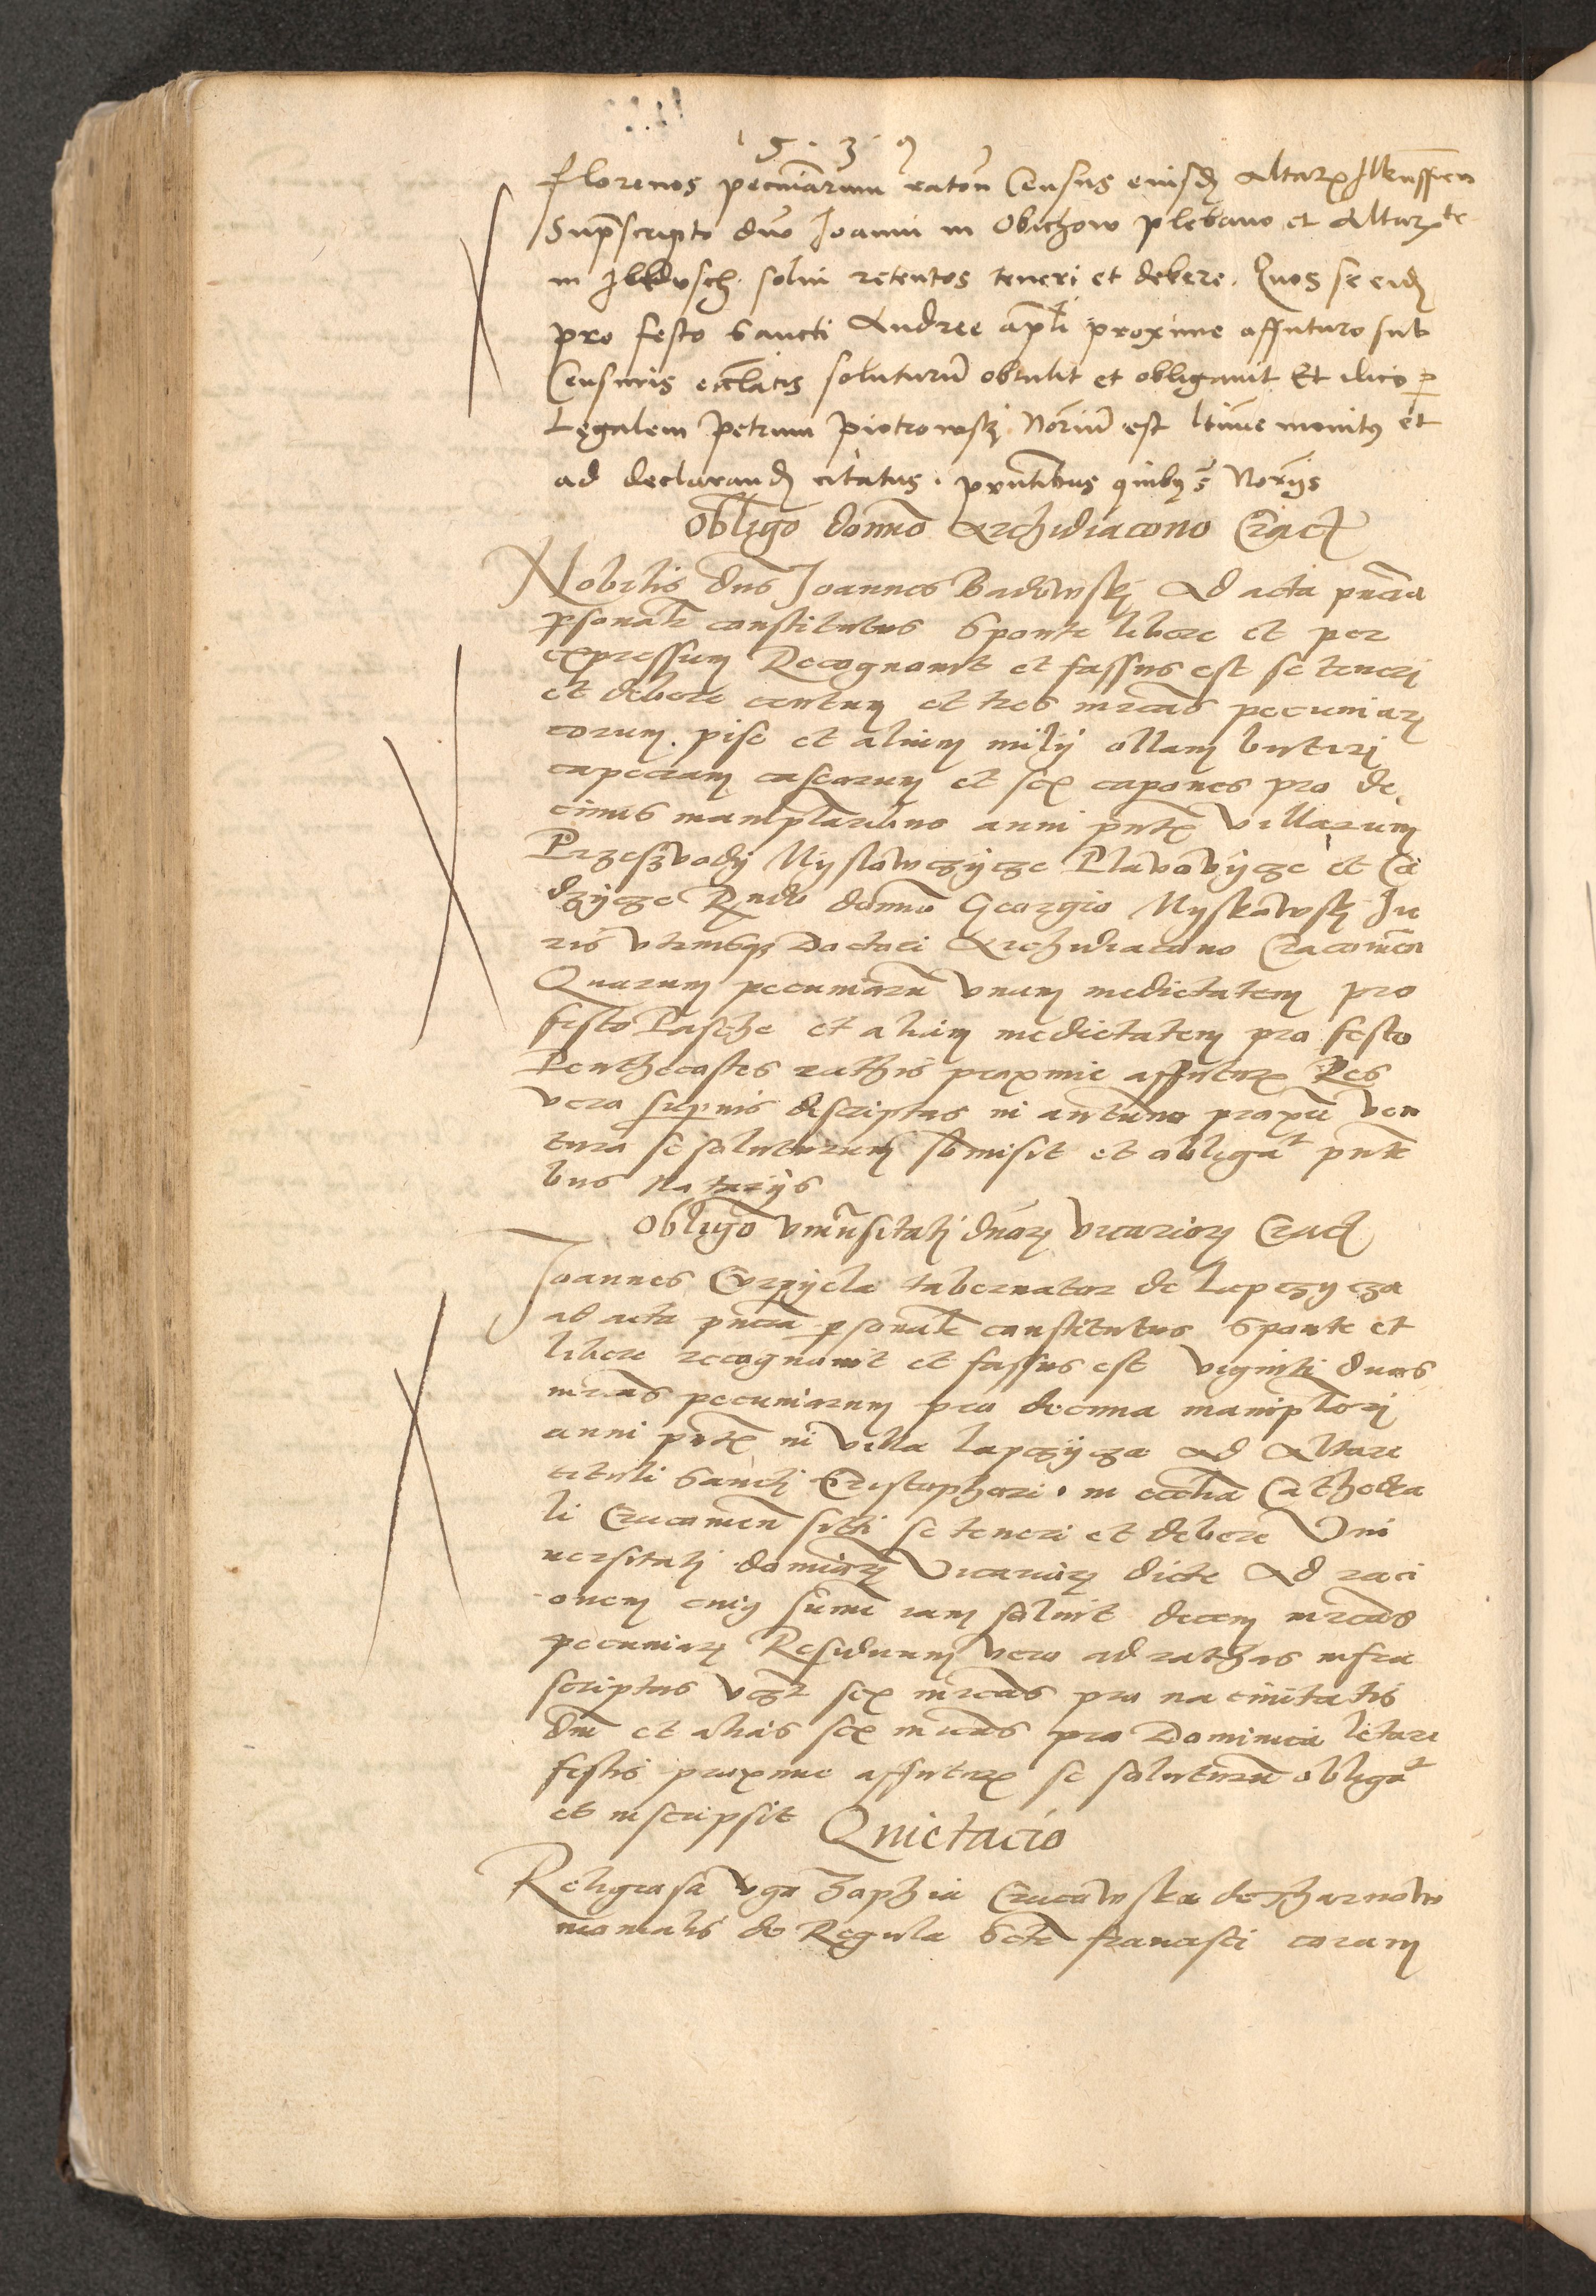 1 5 · 3 9
florenos pecuniarum ratõn Census eiusdẽ Altarꝭ Ilkussien
Supᵃscripto dño Joanni in Obichow plebano et Altarꝭte
in Ilkusch solui retentos teneri et debere. Quos se eidẽ
pro festo Sancti Andree apľi proxime affuturo sub
Censuris eccľiacis soluturũ obtulit et obligauit Et ilico ꝑ
Legalem petrum piotrowskj Norium est lĩtime monitꝰ et
ad declarandũ citatus. pñtibus quibꝰs Norijs
Obligo domno Archidiacono Crac̃
Nobilis Dns Joannes Badowskj Ad acta pñcia
ꝑsonalr constitutus Sponte libere et per
expressum Recognouit et fassus est se tenerj
et debere centum et tres mrcas pecuniarꝝ
corum pise et alium milij ollam buterj
capeciam caseorum et sex capones pro de
cimis manipľaribus anni pñtꝭ villarum
Przeszvody Myslowczycze Plavovycze et Ca
dzycze Rndo domno Georgio Myskowskj Ju
ris vtriusqꝫ Doctori Archidiacono Cracouien
Quarum pecuniarũ vnam medietatem pro
festo Pasche et aliam medietatem pro festo
Penthecostes rathis proxime affuturꝭ Res
vero supius descriptas in autumno proxĩe ven
turo se soluturum submisit et obligaᵗ pñti
bus Notarijs
Obligo vniũsitatj dnorꝝ vicariorꝝ Crac̃
Joannes tabernator de Lapczycza
ad acta pñcia ꝑsonalr constitutus Sponte et
libere recognouit et fassus est viginti duas
mrcas pecuniarum pro decima maniplorj
anni pñtꝭ in villa Lapczycza Ad Altare
tituli Sancti Cristophori in eccľia Cathedra
li Cracouien siti se teneri et debere Vni
uersitatj dominorꝝ Vicariorꝝ dicte Ad raci
onem cuiꝰ sũme iam soluit decem mrcas
pecuniarꝝ Residuum vero ad rathas infra
scriptas vcꝫ sex mrcas pro natiuitatis
Dni et alias sex mrcas pro Dominica letare
festis proxime affuturꝭ se soluturũ obligaᵗ
et inscripsit Quietacio
Religiosa vgo Zophia Cracowska de Tharnow
monialis de Regula Scti francisci coram